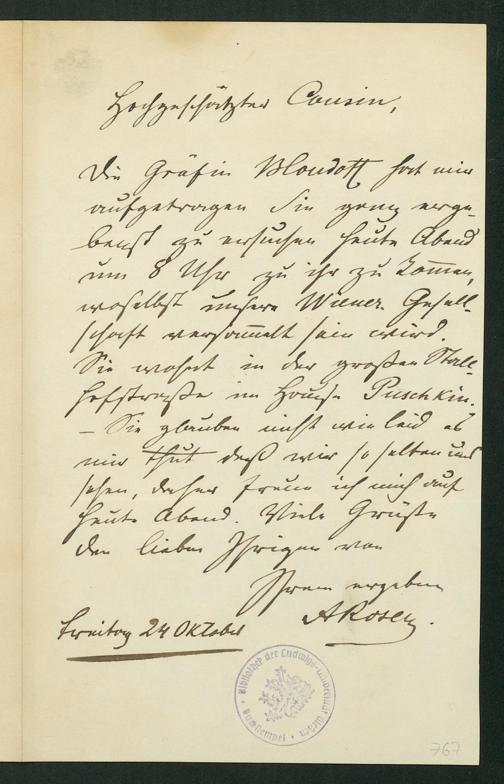 Hochgeschätzter Cousin,
Die Gräfin Bloudoff hat mir
aufgetragen Sie ganz erge-
benst zu ersuchen heute Abend
um 8 Uhr zu ihr zu kom̅en,
woselbst unsere Wiener Gesell-
schaft versam̅elt sein wird.
Sie wohnt in der großen Stall-
hofstraße im Hause Puschkin.
– Sie glauben nicht wie leid es
mir thut daß wir so selten uns
sehen, daher freue ich mich auf
heute Abend. Viele Grüße
den lieben Ihrigen von
Ihrem ergebenen
ARosen.
Freitag 24 Oktober
Bibliothek der Ludwigs-Universität
Giessen
767